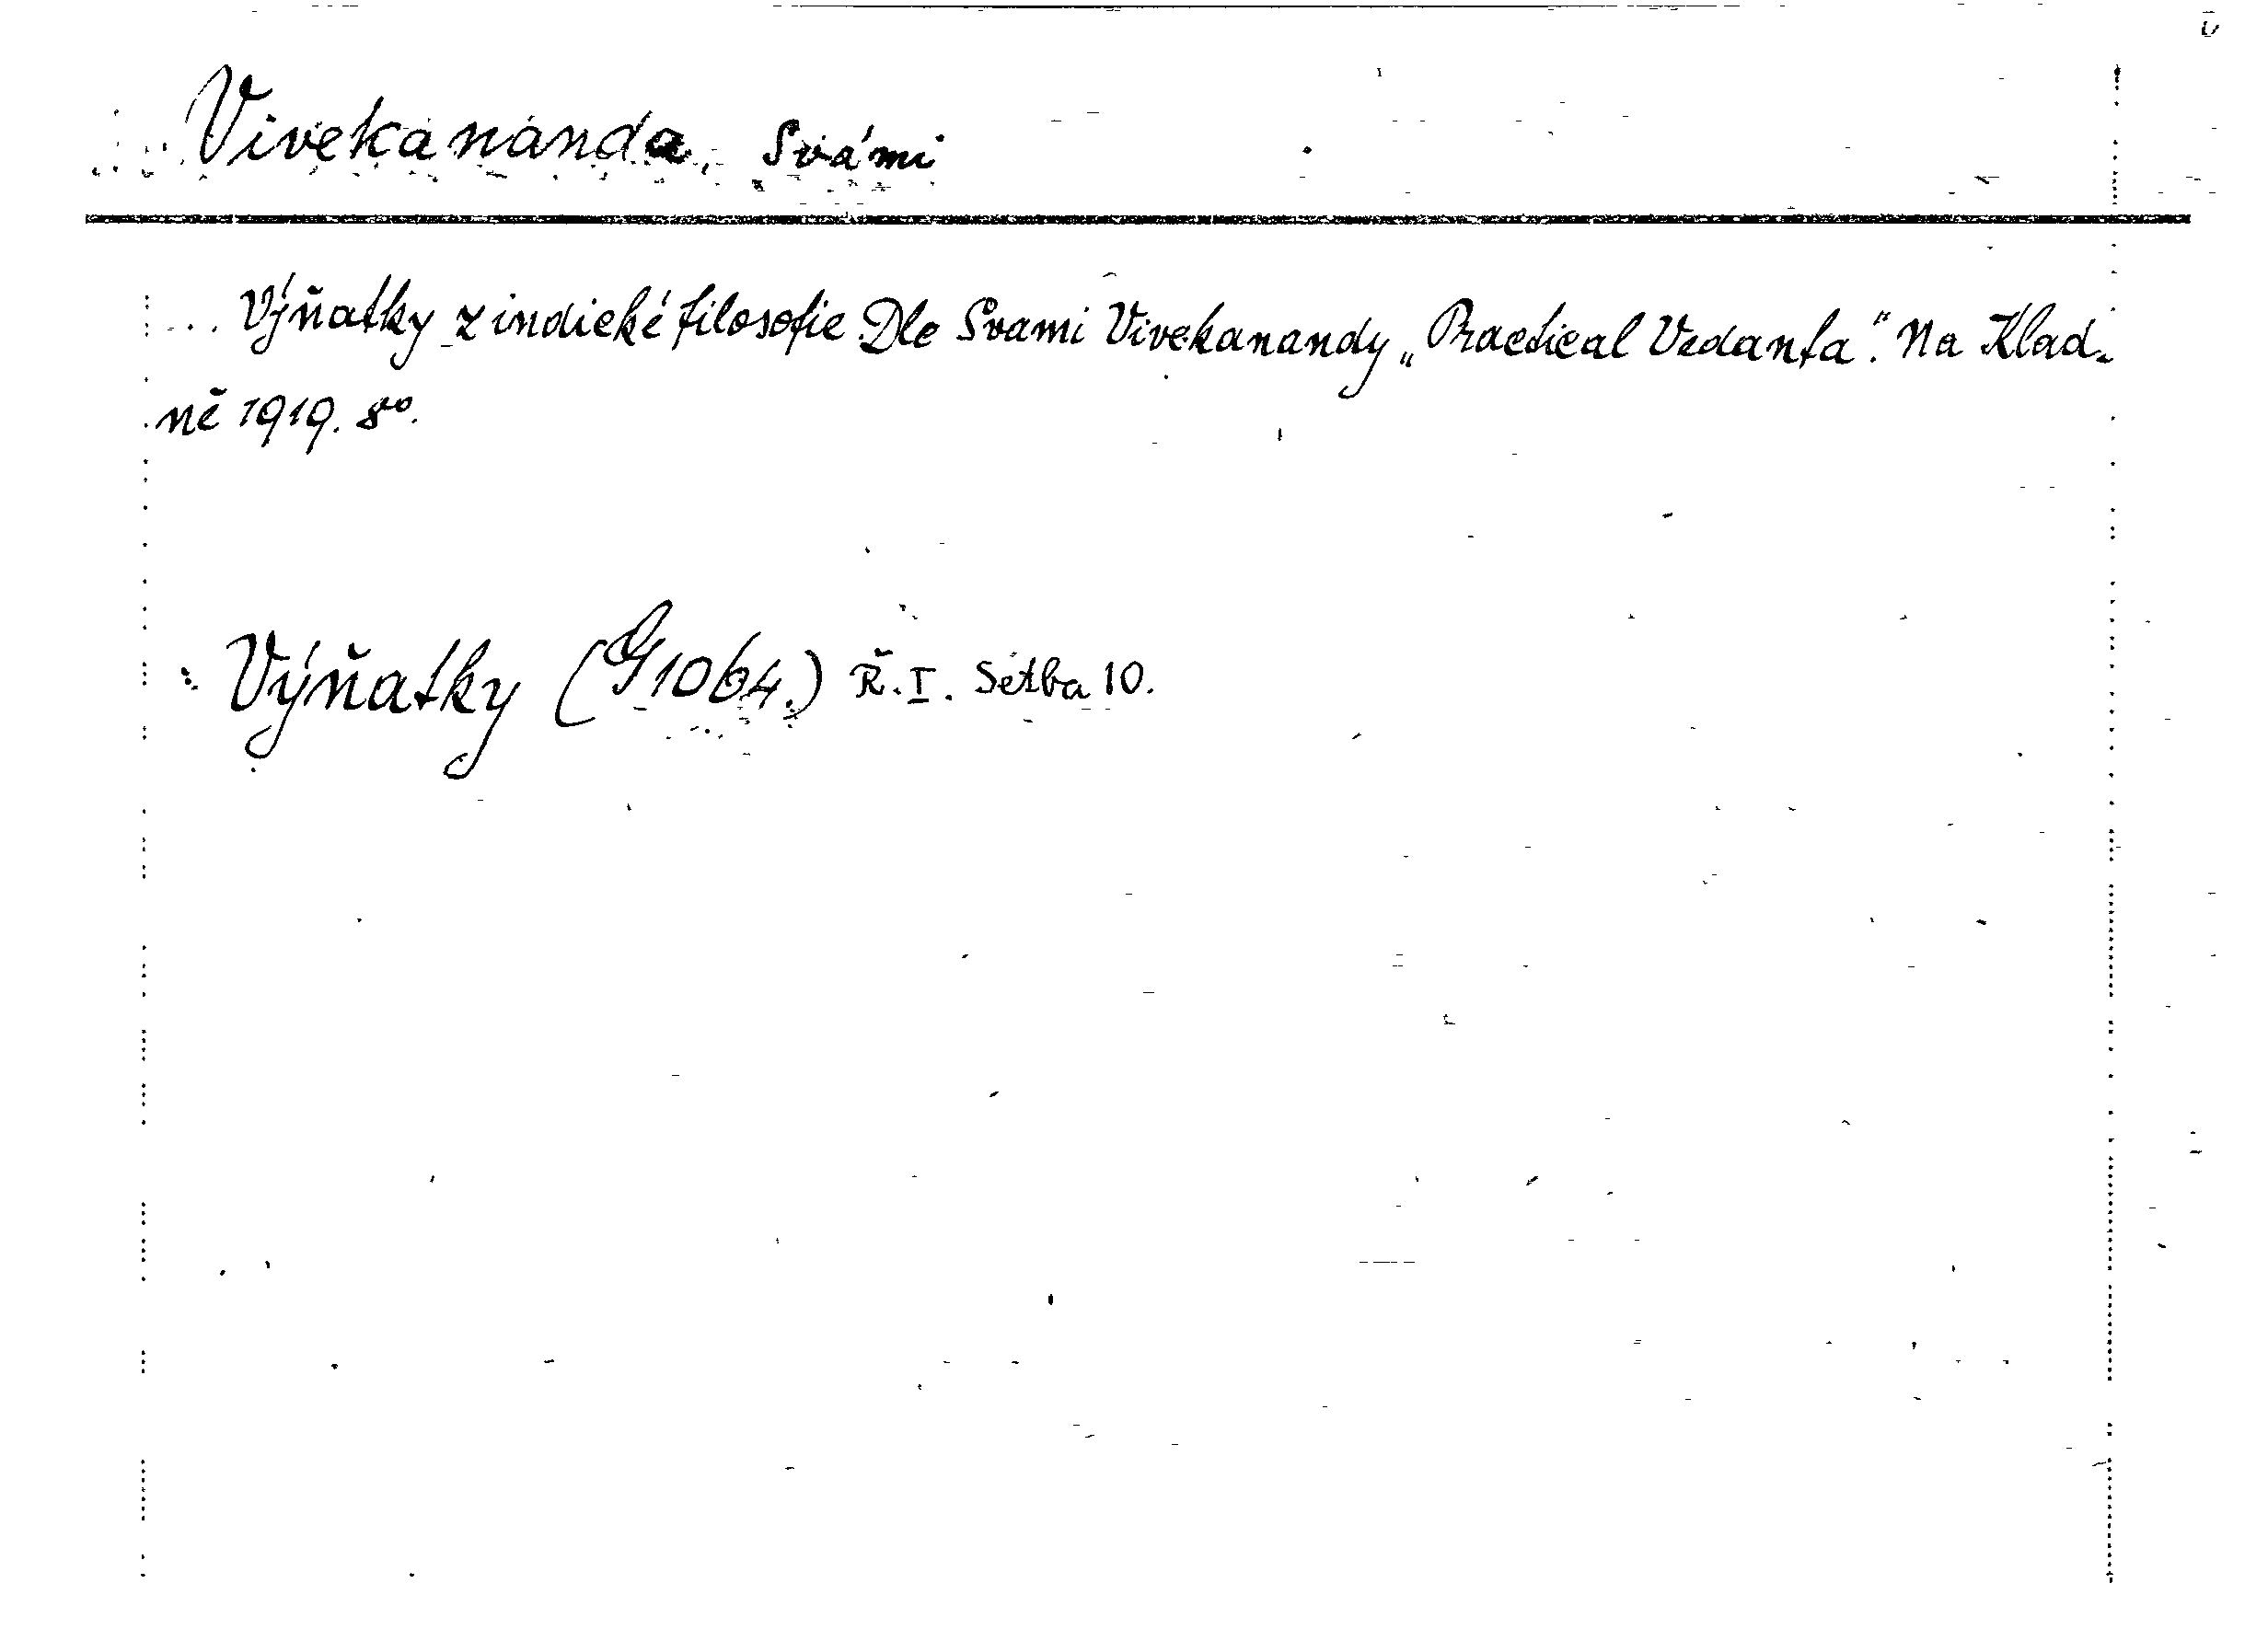 Vivekananda, Svámi
... Výňatky z indické filosofie Dle Svami Vivekanandy „Practical Vedanta“. Na Klad-
ně 1919. 8º.
Výňatky (G 1064.) Ř. I. Setba 10.